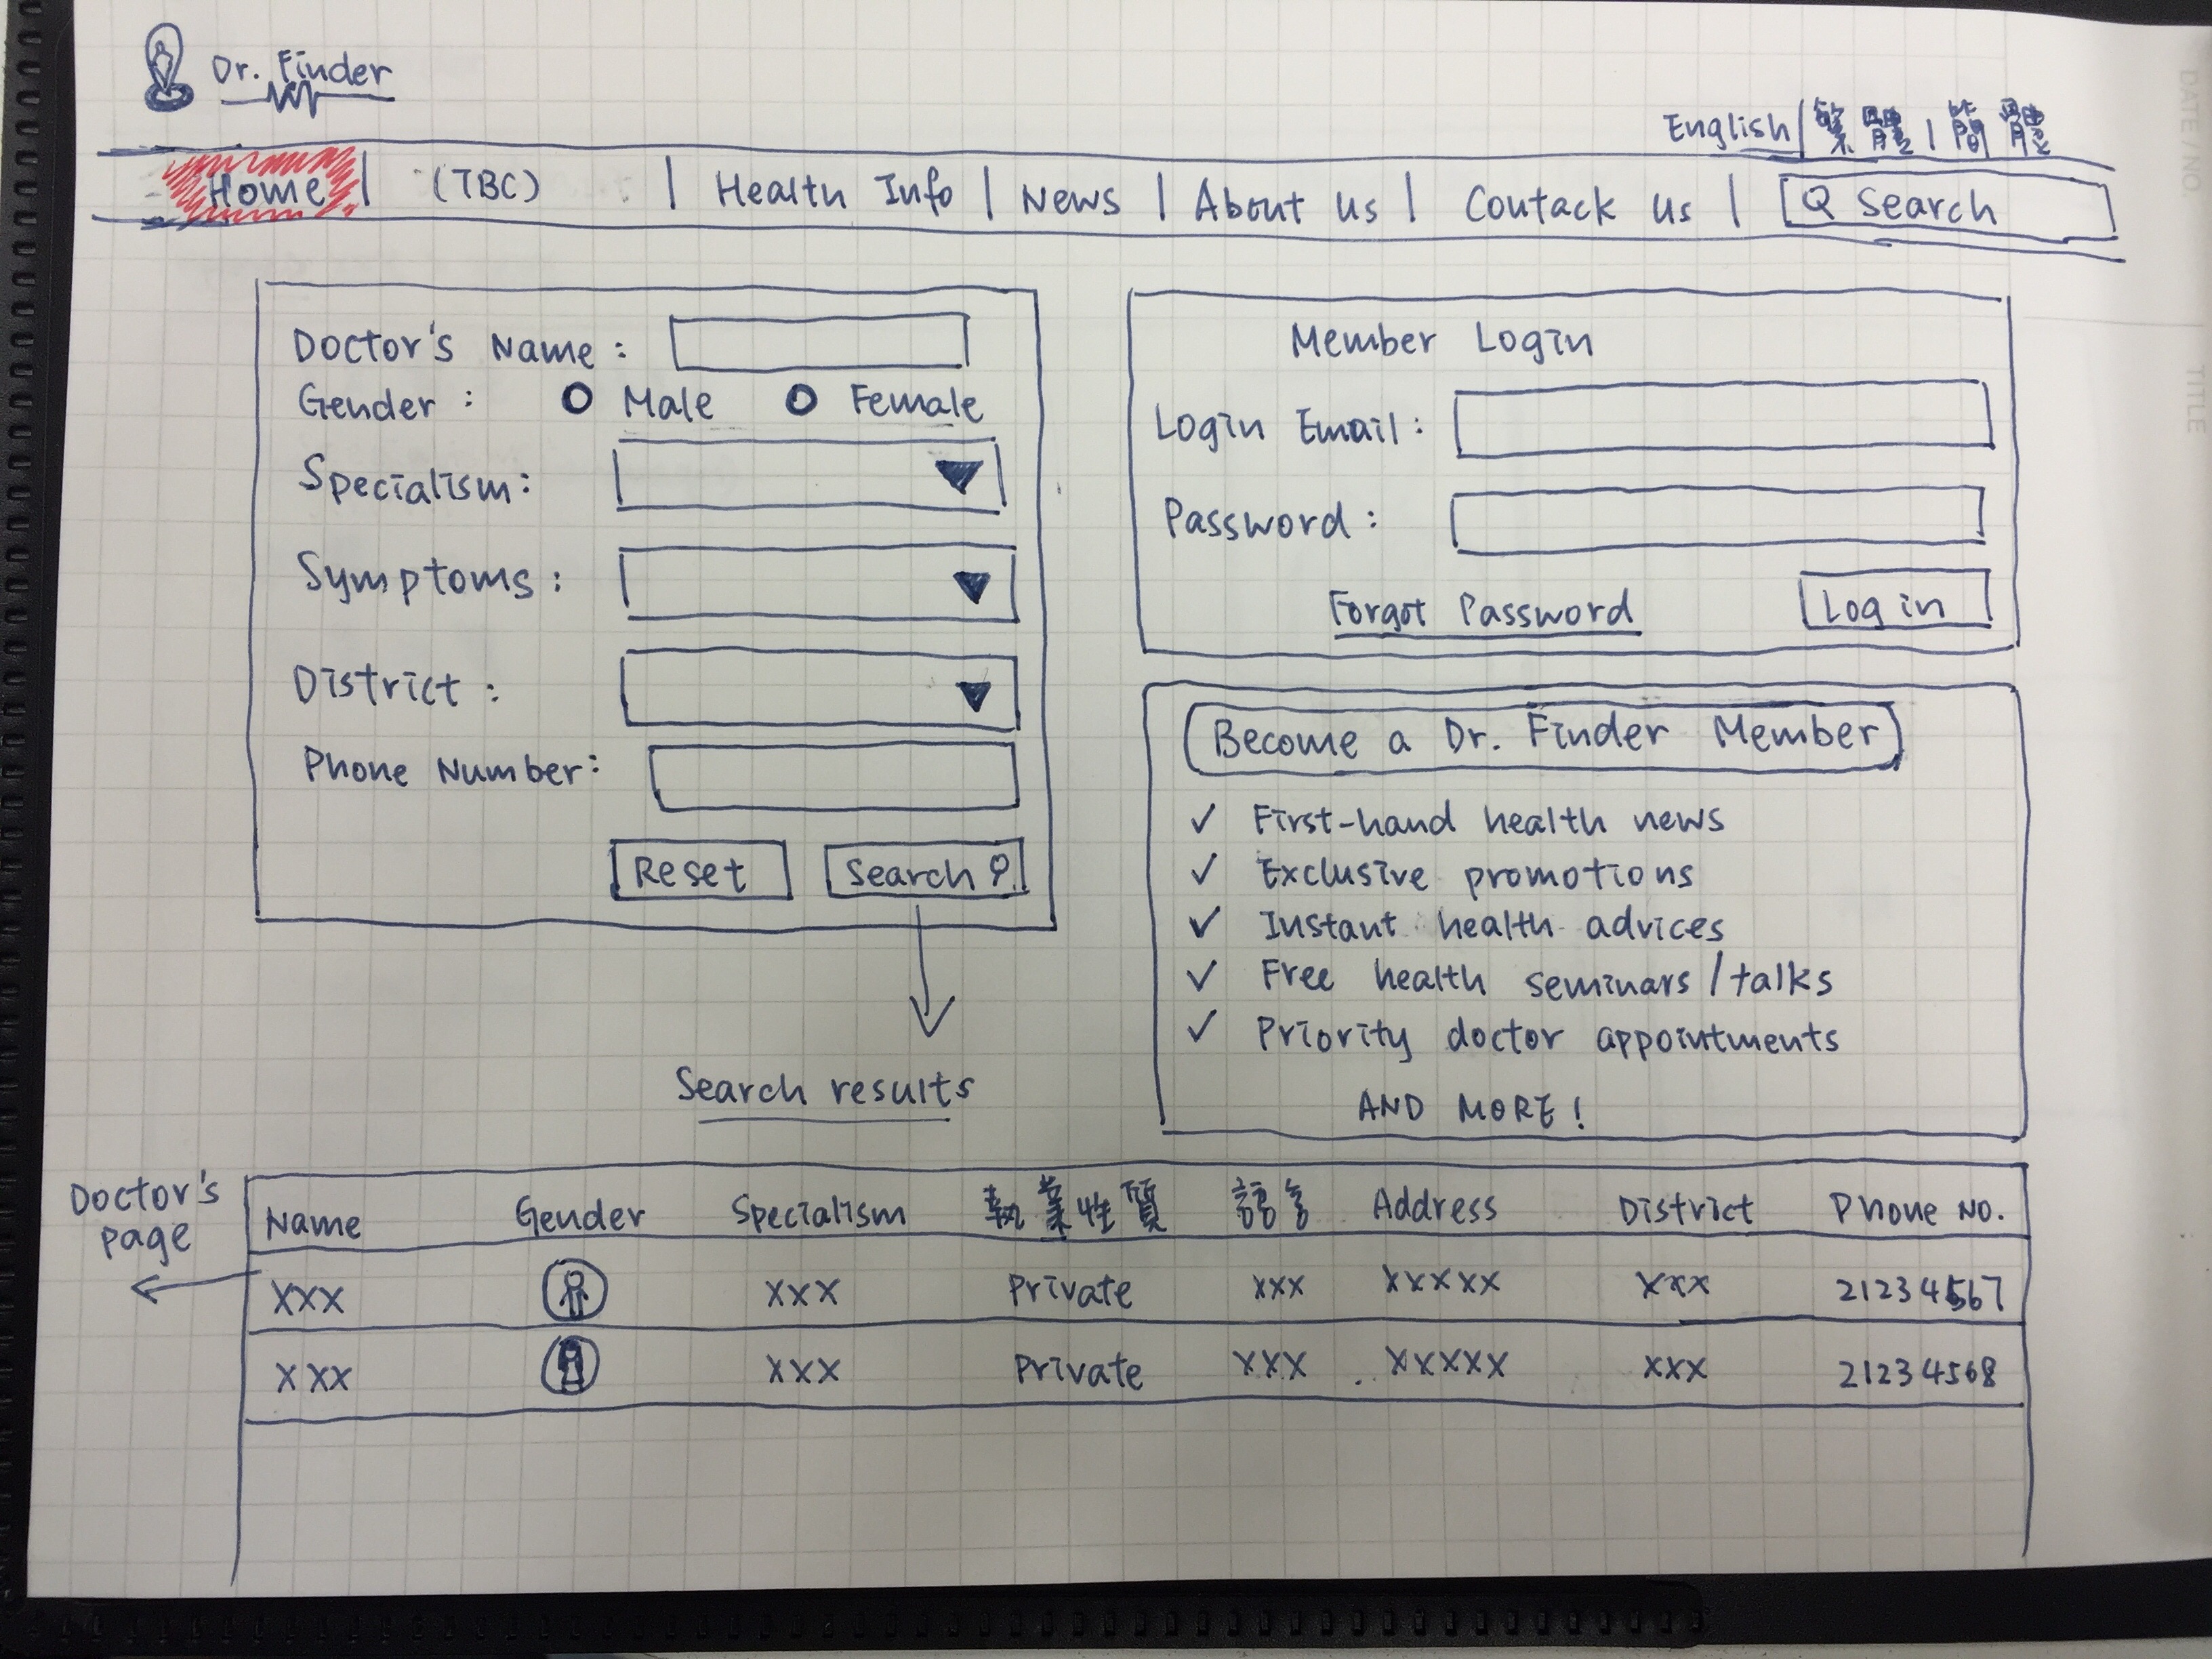 Dr. Finder
English/繁體|簡體
Home | (TBC) | Health Info | News | About us | Contack us | Search
Doctor's Name:
Gender: Male Female
Specialism:
Symptoms:
District:
Phone Number:
Reset Search
Member Login
Login Email:
Password:
Forgot Password Log in
Become a Dr. Finder Member
✓ First-hand health news
✓ Exclusive promotions
✓ Instant health advices
✓ Free health seminars/talks
✓ Priority doctor appointments
AND MORE!
Search results
Doctor's
page
Name Gender Specialism 執業性質 語言 Address District Phone No.
XXX XXX Private XXX XXXXX XXX 21234567
XXX XXX Private XXX XXXXX XXX 21234568
DATE / NO.
TITLE